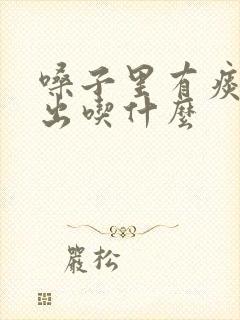 嗓子里有痰
出喫什麼
嚴松